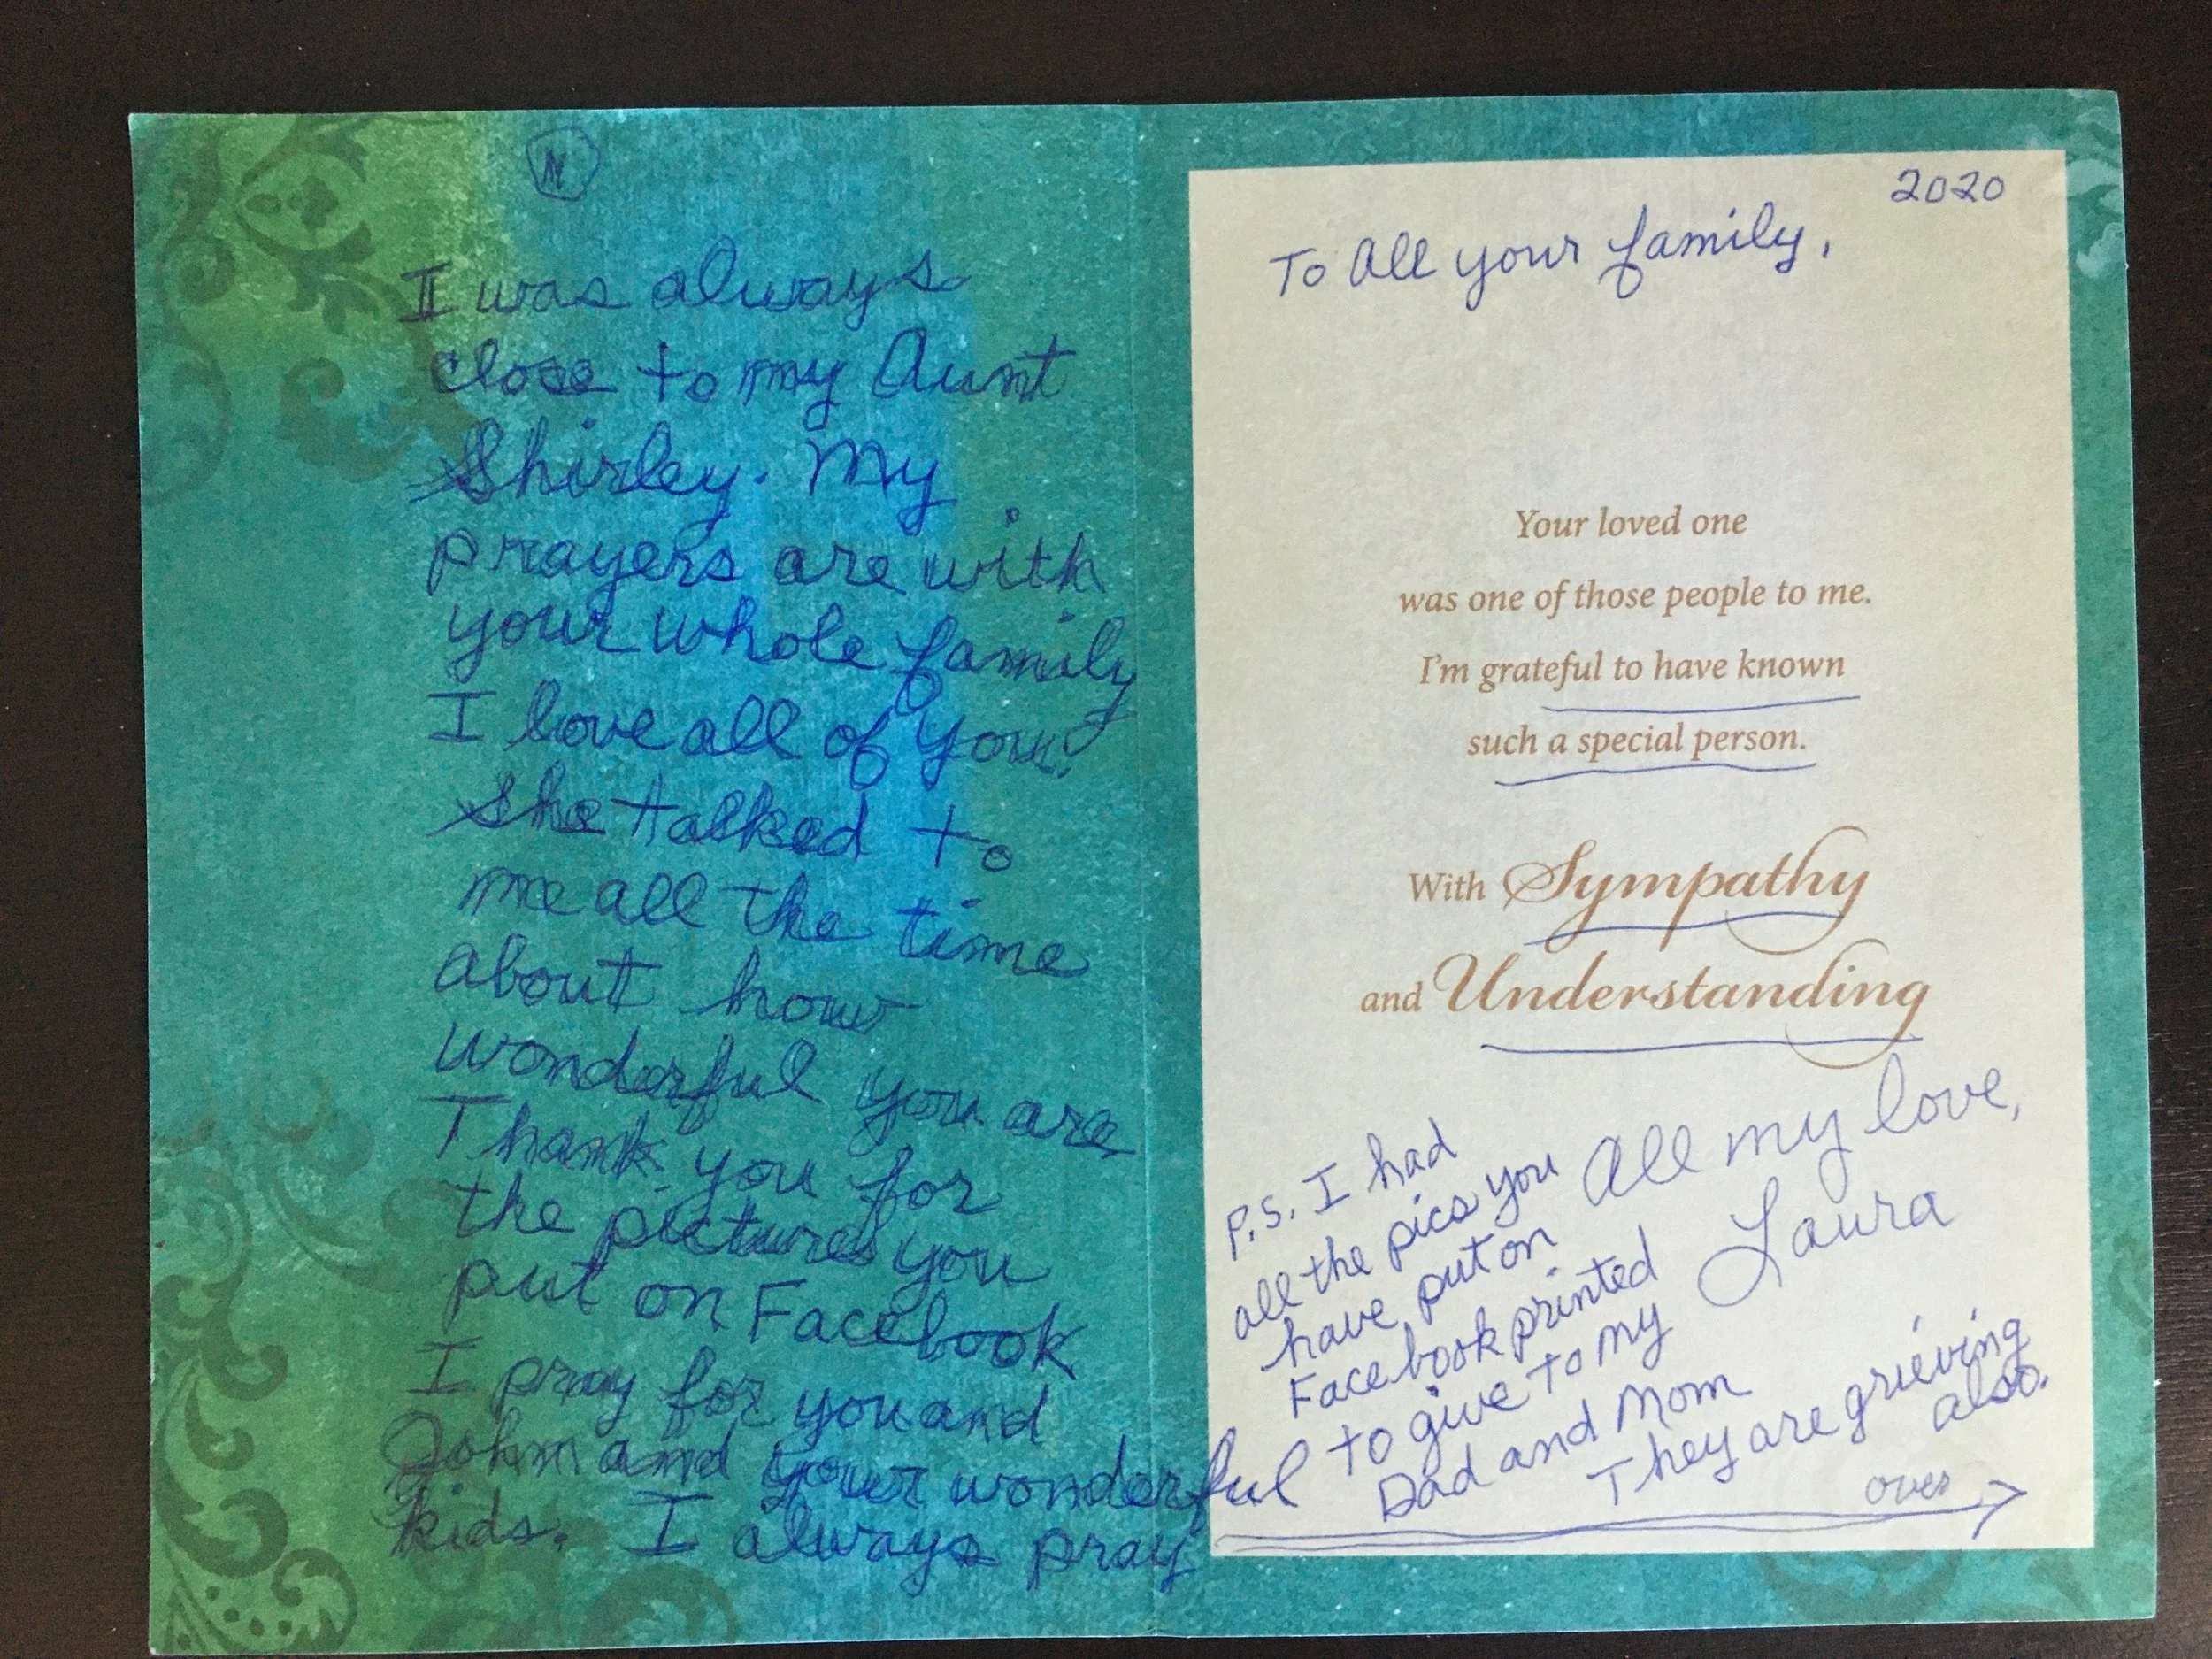 I was always
close to my Aunt
Shirley. My
prayers are with
your whole family
I love all of you!
She talked to
me all the time
about how
wonderful you are
Thank you for
the pictures you
put on Facebook
I pray for you and
John and your wonderful
kids. I always pray
2020
To All your family,
Your loved one
was one of those people to me.
I'm grateful to have known
such a special person.
With Sympathy
and Understanding
All my love,
Laura
P.S. I had
all the pics you
have put on
Facebook printed
to give to my
Dad and Mom
They are grieving
also.
over